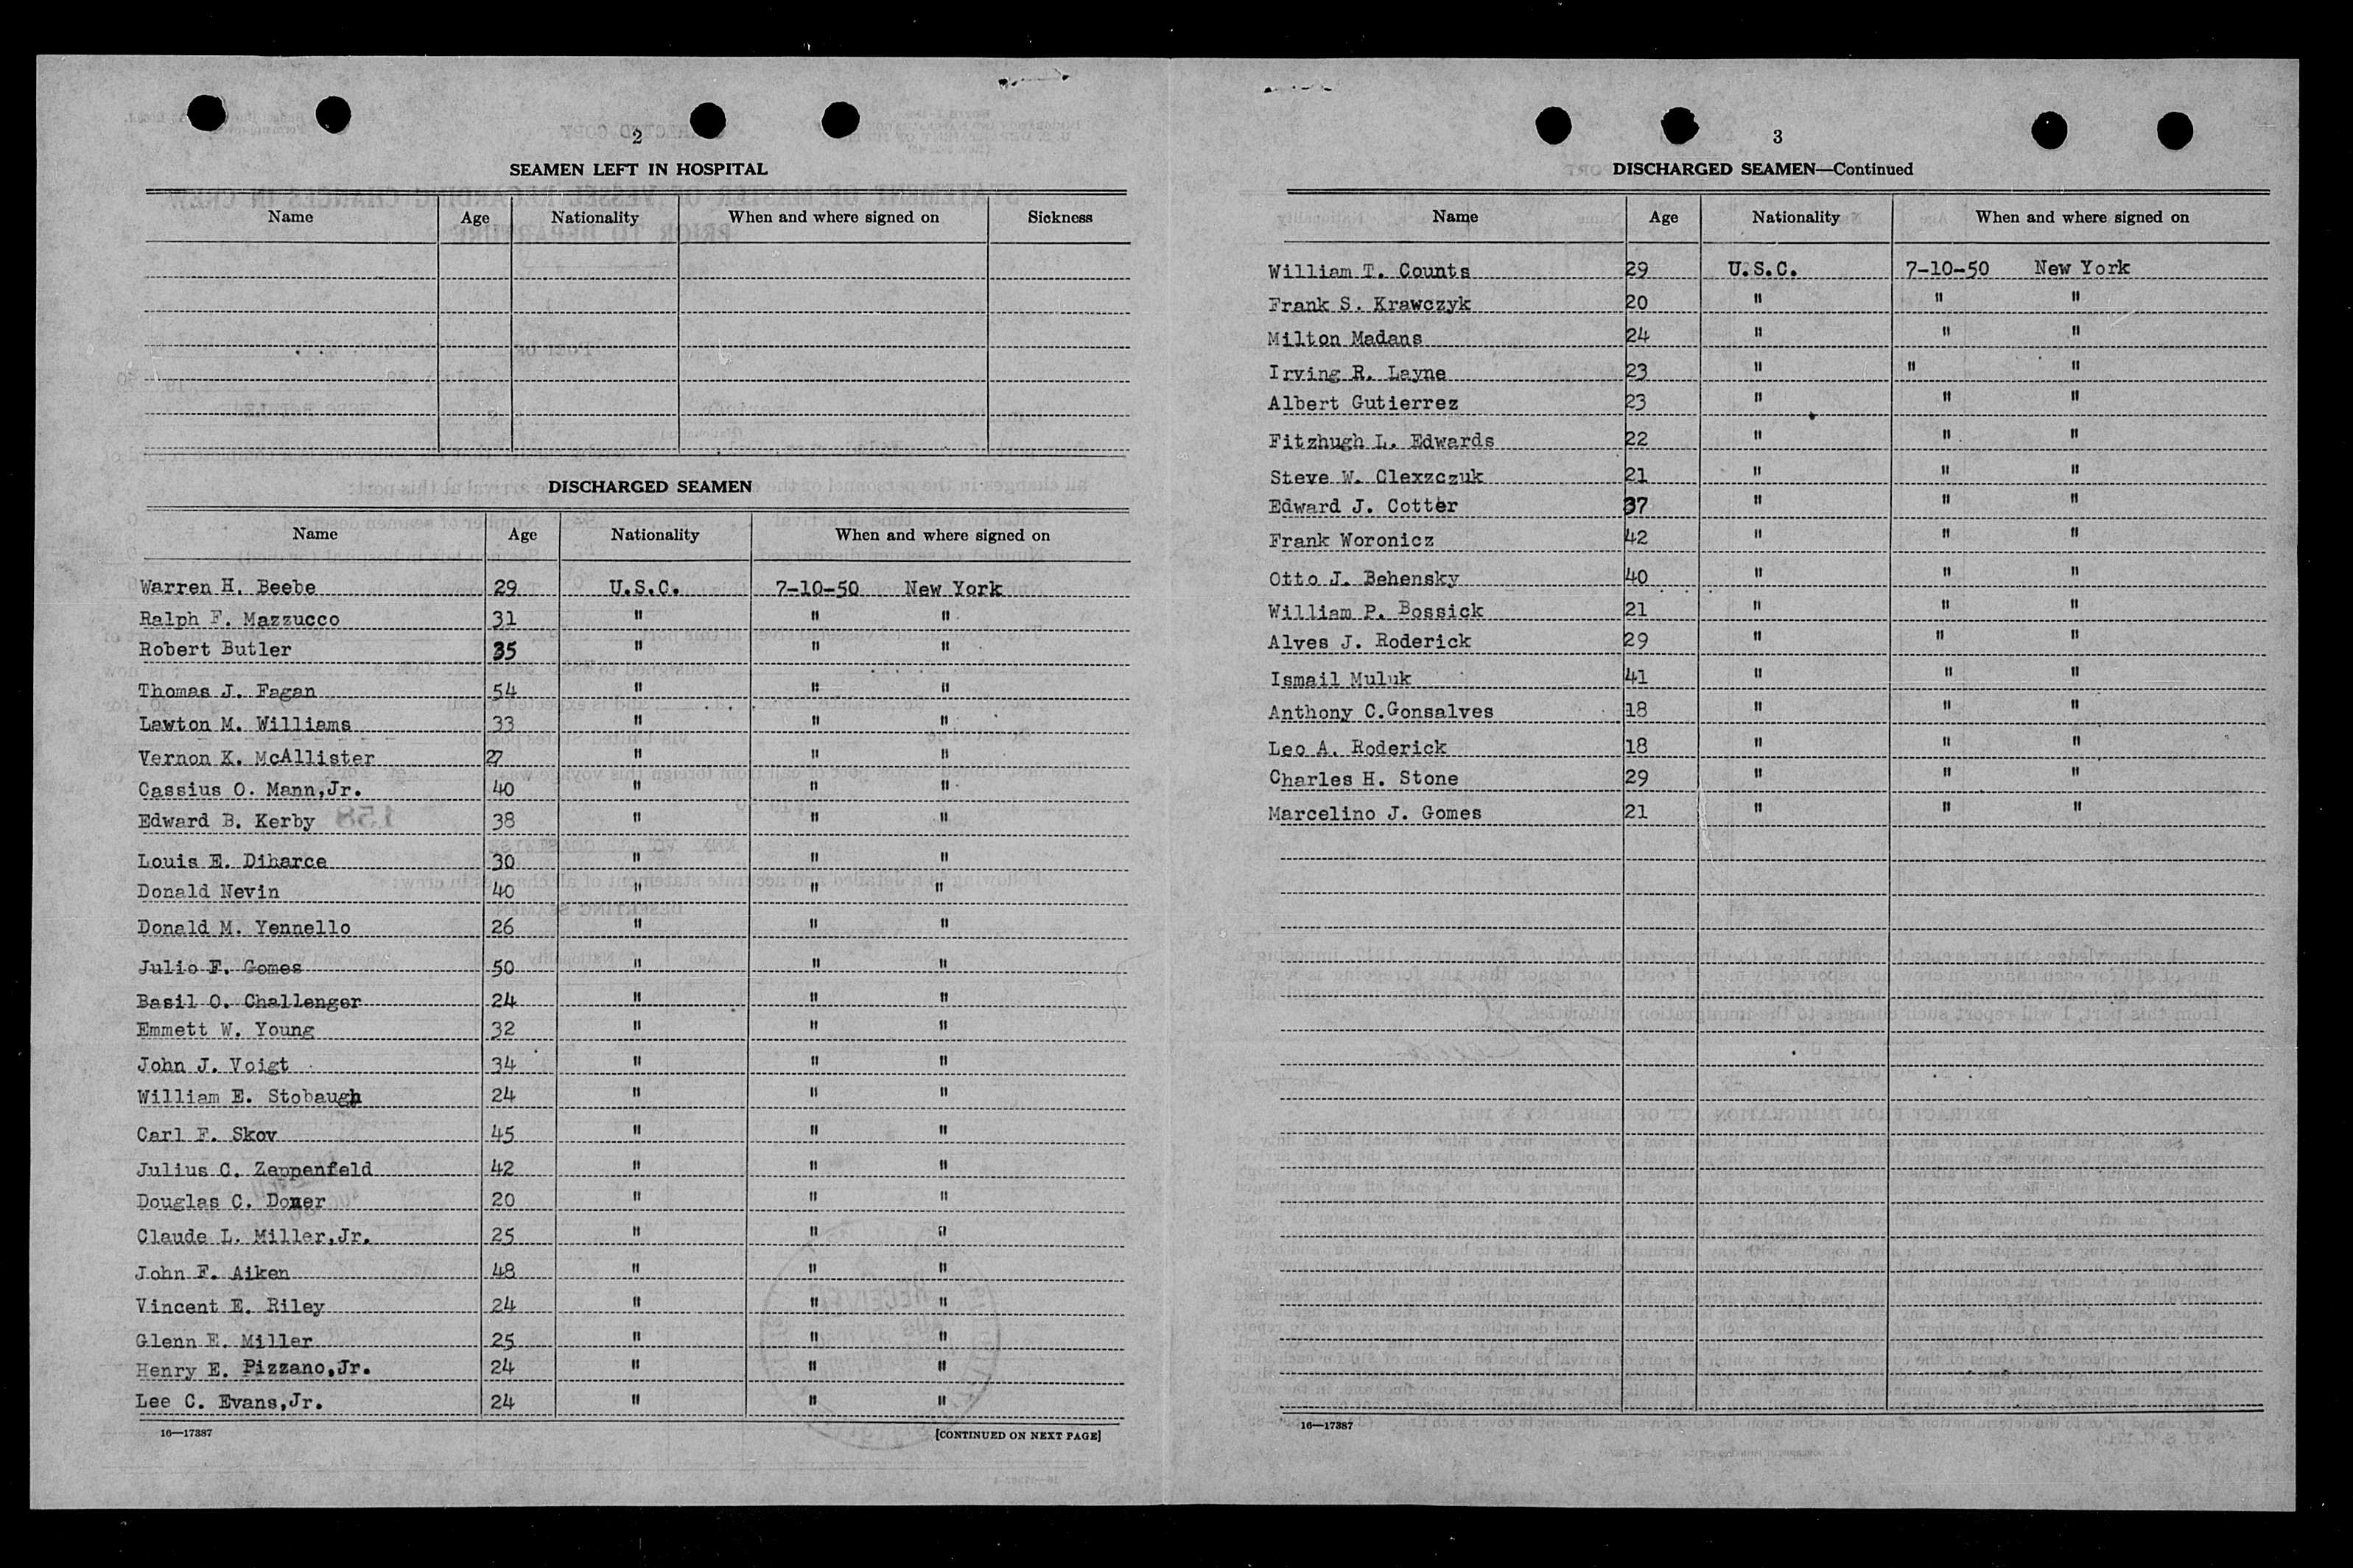 2
SEAMEN LEFT IN HOSPITAL
Name Age Nationality When and where signed on Sickness
DISCHARGED SEAMEN
Name Age Nationality When and where signed on
Warren H. Beebe 29 U.S.C. 7-10-50 New York
Ralph F. Mazzucco 31 " " "
Robert Butler 35 " " "
Thomas J. Fagan 54 " " "
Lawton M. Williams 33 " " "
Vernon K. McAllister 27 " " "
Cassius O. Mann,Jr. 40 " " "
Edward B. Kerby 38 " " "
Louis E. Diharce 30 " " "
Donald Nevin 40 " " "
Donald M. Yennello 26 " " "
Julio F. Gomes 50 " " "
Basil O. Challenger 24 " " "
Emmett W. Young 32 " " "
John J. Voigt 34 " " "
William E. Stobaugh 24 " " "
Carl F. Skov 45 " " "
Julius C. Zeppenfeld 42 " " "
Douglas C. Doner 20 " " "
Claude L. Miller,Jr. 25 " " "
John F. Aiken 48 " " "
Vincent E. Riley 24 " " "
Glenn E. Miller 25 " " "
Henry E. Pizzano,Jr. 24 " " "
Lee C. Evans,Jr. 24 " " "
16—17387 [CONTINUED ON NEXT PAGE]
3
DISCHARGED SEAMEN—Continued
Name Age Nationality When and where signed on
William T. Counts 29 U.S.C. 7-10-50 New York
Frank S. Krawczyk 20 " " "
Milton Madans 24 " " "
Irving R. Layne 23 " " "
Albert Gutierrez 23 " " "
Fitzhugh L. Edwards 22 " " "
Steve W. Clexzczuk 21 " " "
Edward J. Cotter 37 " " "
Frank Woronicz 42 " " "
Otto J. Behensky 40 " " "
William P. Bossick 21 " " "
Alves J. Roderick 29 " " "
Ismail Muluk 41 " " "
Anthony C.Gonsalves 18 " " "
Leo A. Roderick 18 " " "
Charles H. Stone 29 " " "
Marcelino J. Gomes 21 " " "
16—17387